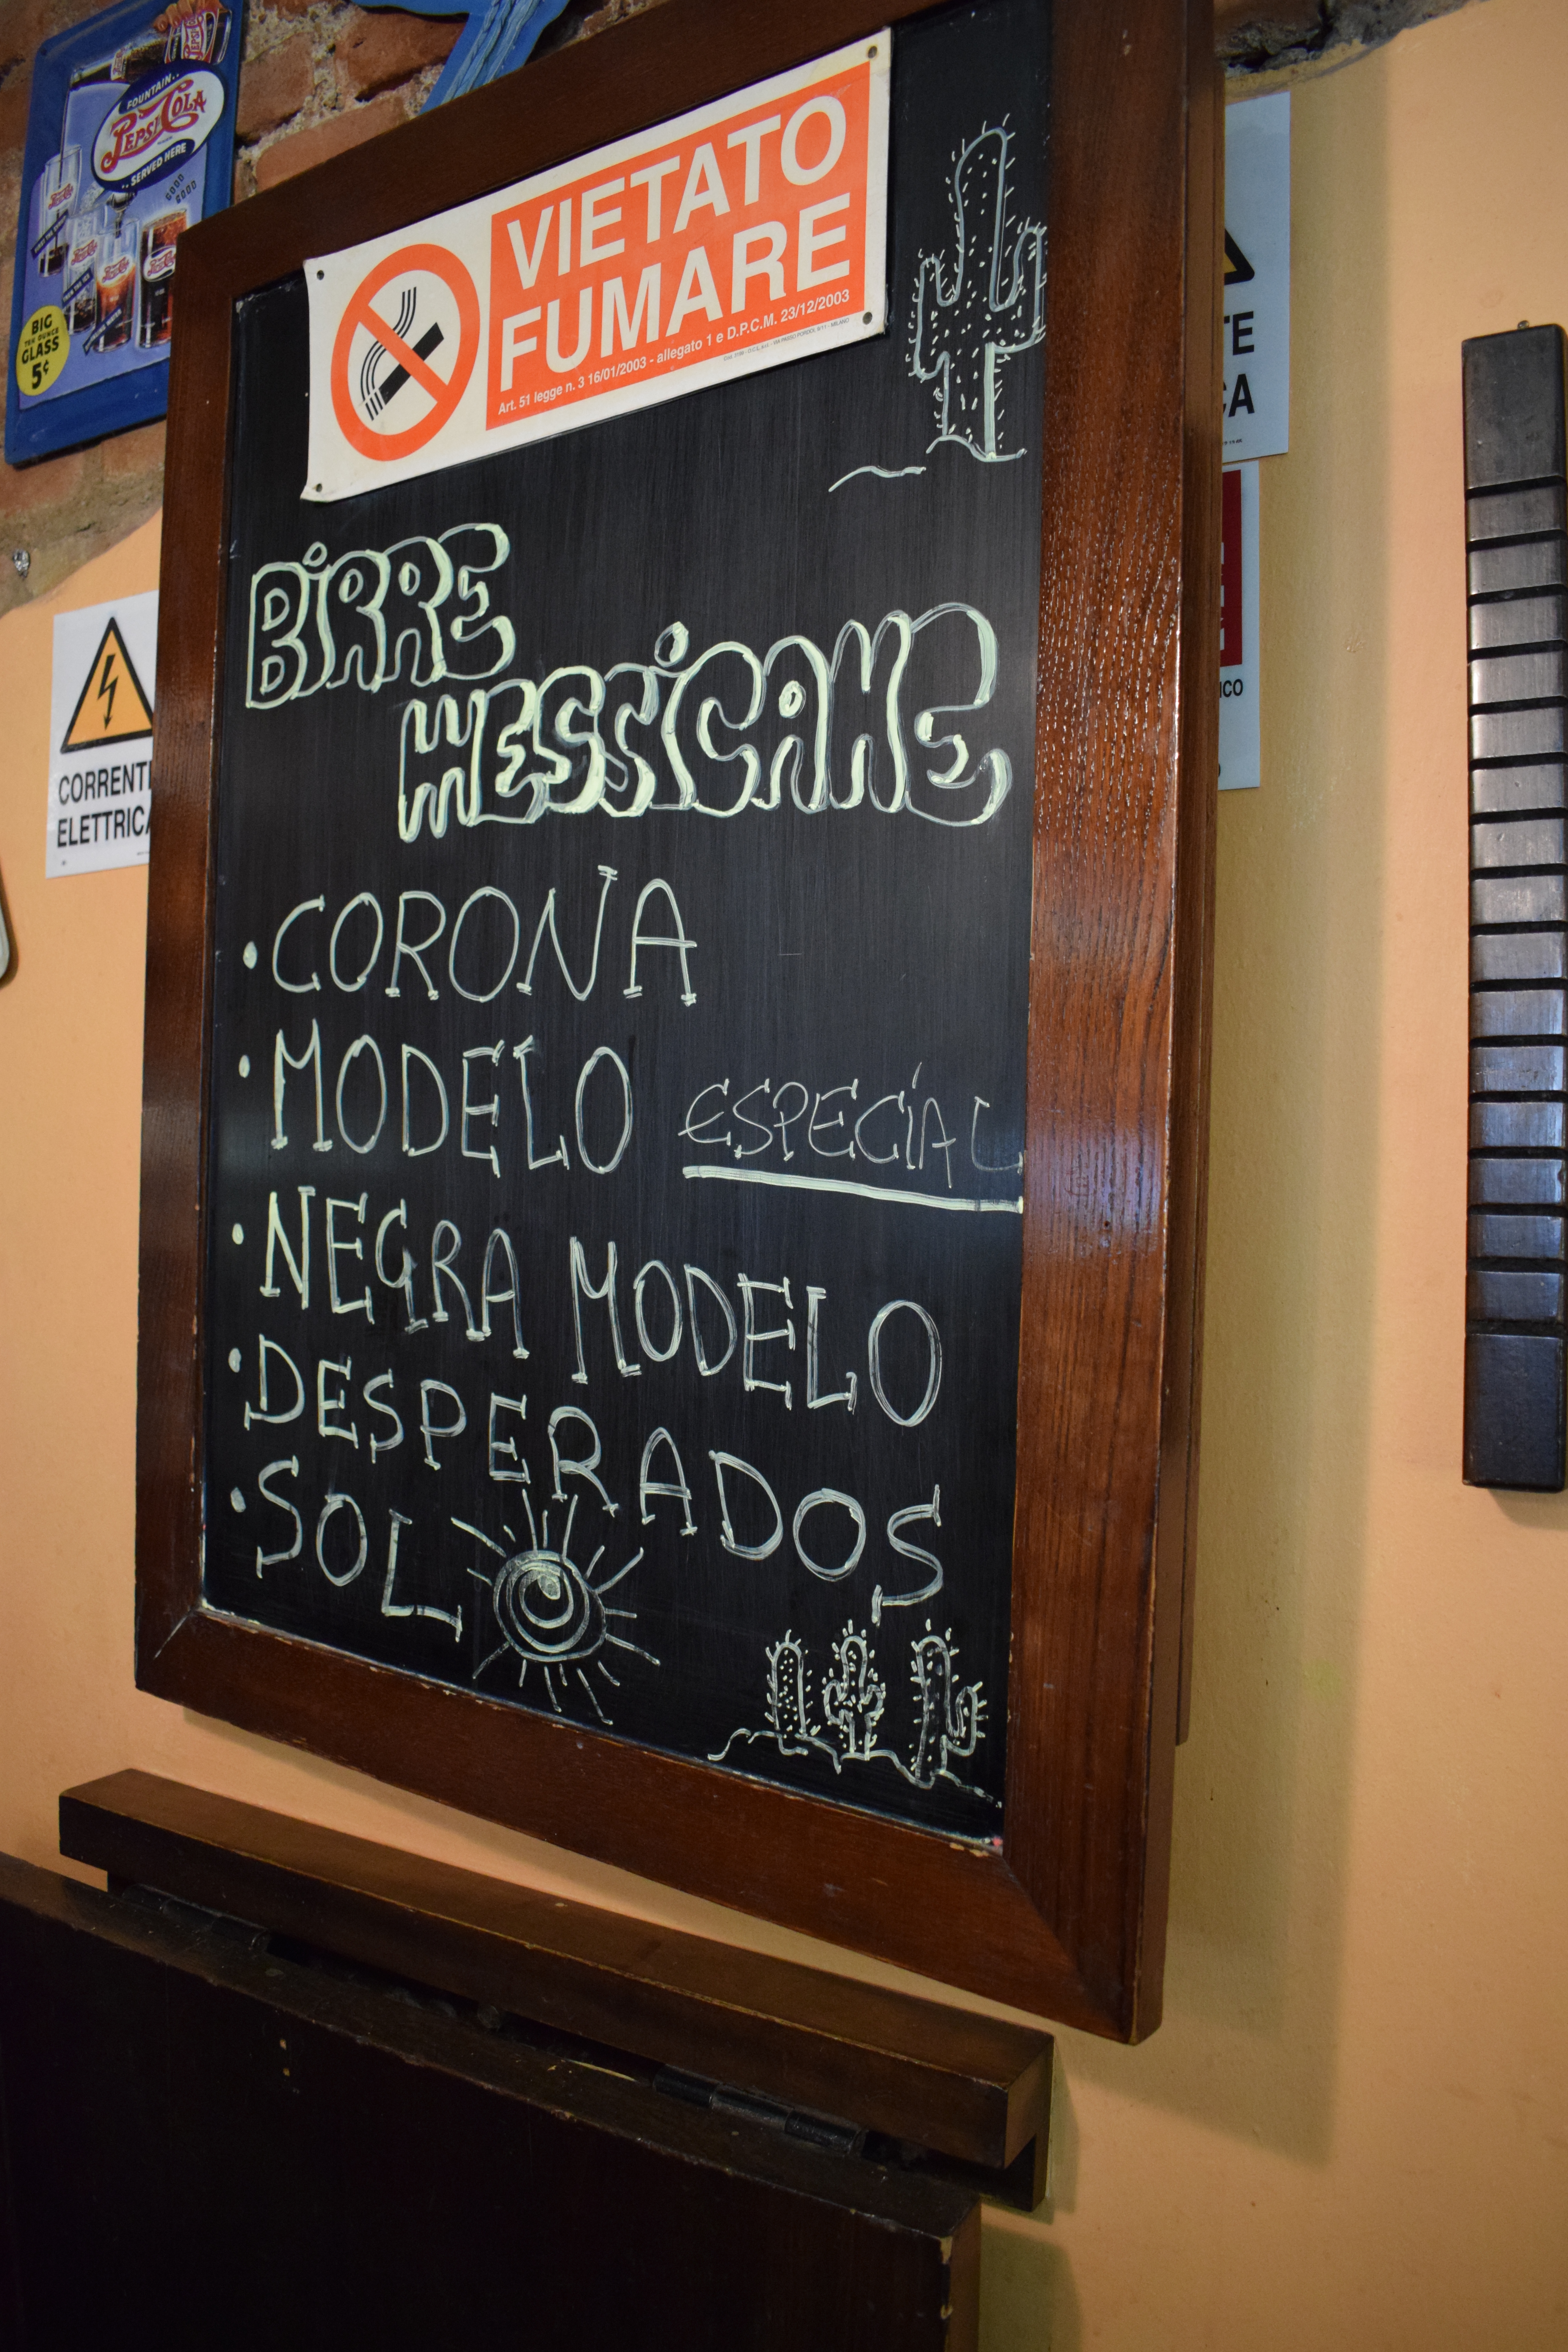 FOUNTAIN
PEPSI-COLA
SERVED HERE
GOOD
GOOD
BIG
TEN OUNCE
GLASS
5¢
VIETATO
FUMARE
Art. 51 legge n. 3 16/01/2003 - allegato 1 e D.P.C.M. 23/12/2003
BIRRE
MESSICANE
• CORONA
• MODELO ESPECIAL
• NEGRA MODELO
• DESPERADOS
• SOL
CORRENTE
ELETTRICA
TE
CA
ICO